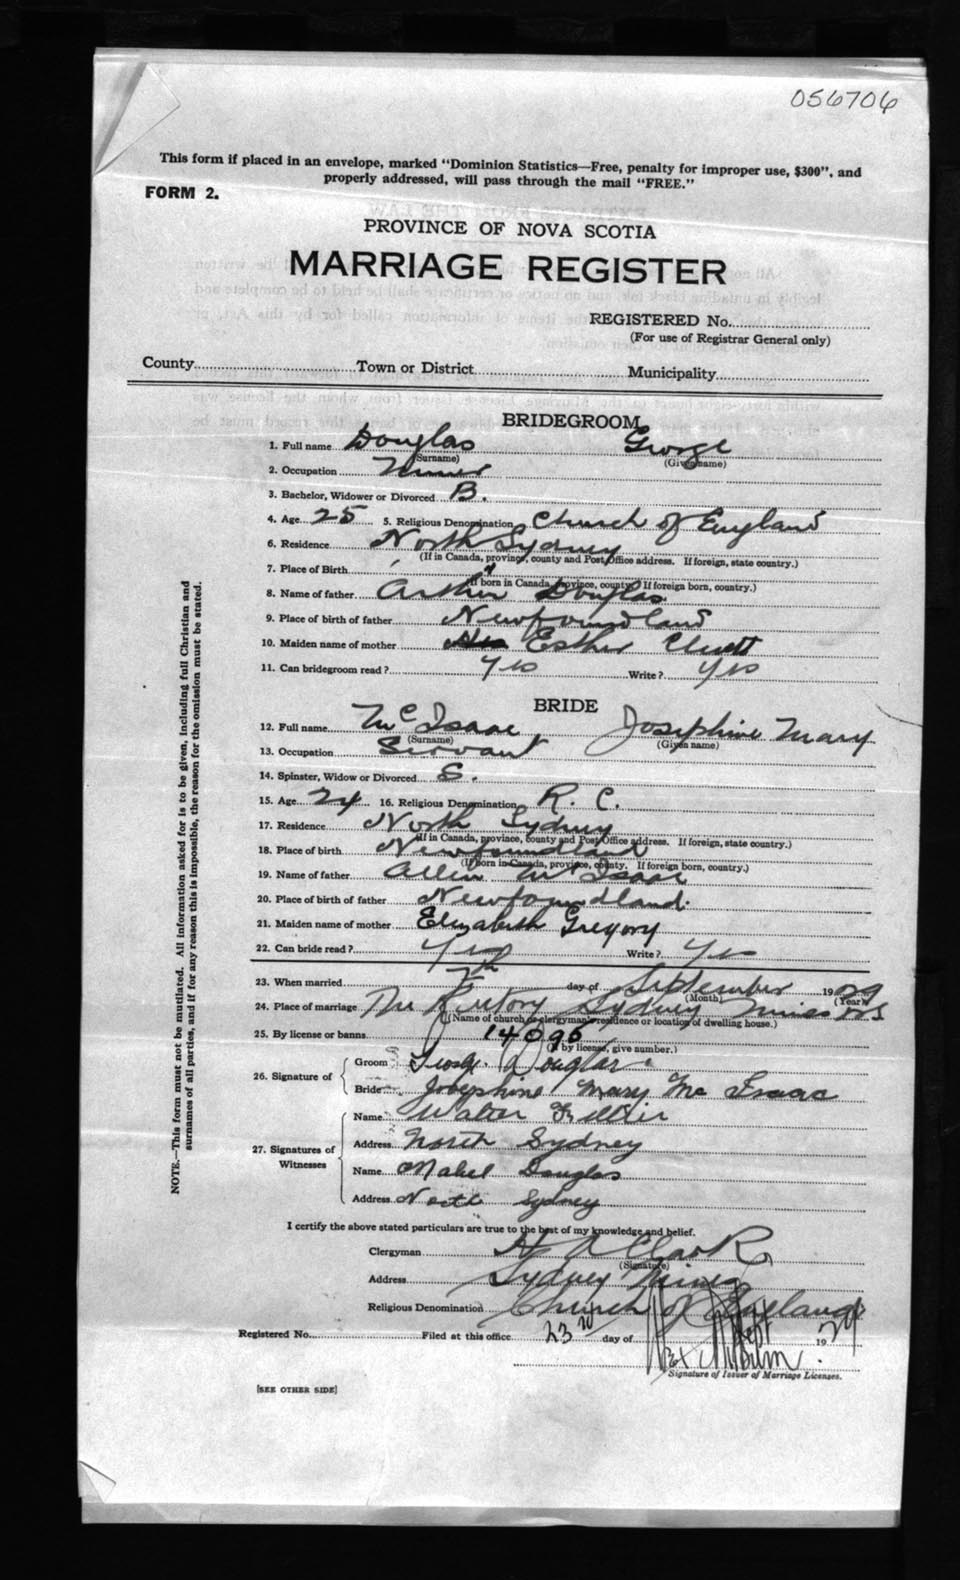 056706
This form if placed in an envelope, marked "Dominion Statistics—Free, penalty for improper use, $300", and
properly addressed, will pass through the mail "FREE."
FORM 2.
PROVINCE OF NOVA SCOTIA
MARRIAGE REGISTER
REGISTERED No.
(For use of Registrar General only)
County Town or District Municipality
BRIDEGROOM
1. Full name Douglas George
(Surname) (Given name)
2. Occupation Miner
3. Bachelor, Widower or Divorced B.
4. Age 25 5. Religious Denomination Church of England
6. Residence North Sydney
(If in Canada, province, county and Post Office address. If foreign, state country.)
7. Place of Birth "
(If born in Canada, province, county. If foreign born, country.)
8. Name of father Arthur Douglas
9. Place of birth of father Newfoundland
10. Maiden name of mother Esther Cluett
11. Can bridegroom read? Yes Write? Yes
BRIDE
12. Full name McIsaac Josephine Mary
(Surname) (Given name)
13. Occupation Servant
14. Spinster, Widow or Divorced S.
15. Age 24 16. Religious Denomination R. C.
17. Residence North Sydney
(If in Canada, province, county and Post Office address. If foreign, state country.)
18. Place of birth Newfoundland
(If born in Canada, province, county. If foreign born, country.)
19. Name of father Allen McIsaac
20. Place of birth of father Newfoundland.
21. Maiden name of mother Elizabeth Gregory
22. Can bride read? Yes Write? Yes
23. When married 7th day of September 1929
(Month) (Year)
24. Place of marriage The Rectory Sydney Mines NS
(Name of church or clergyman's residence or location of dwelling house.)
25. By license or banns 14096
(If by license, give number.)
26. Signature of
Groom George Douglas
Bride Josephine Mary McIsaac
27. Signatures of
Witnesses
Name Walter
Address North Sydney
Name Mabel Douglas
Address North Sydney
I certify the above stated particulars are true to the best of my knowledge and belief.
Clergyman H A Clark
(Signature)
Address Sydney Mines
Religious Denomination Church of England
Registered No. Filed at this office 23rd day of Sept 1929
Signature of Issuer of Marriage Licenses.
[SEE OTHER SIDE]
NOTE.—This form must not be mutilated. All information asked for is to be given, including full Christian and
surnames of all parties, and if for any reason this is impossible, the reason for the omission must be stated.